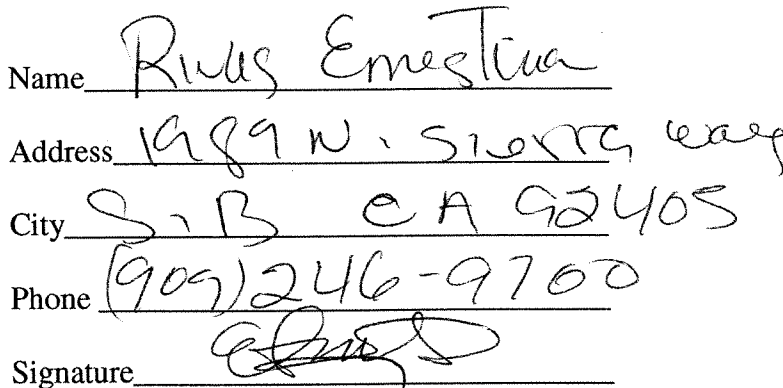 Name Rivas Ernestina
Address 1989 N. Sierra way
City S.B CA 92405
Phone (909)246-9700
Signature